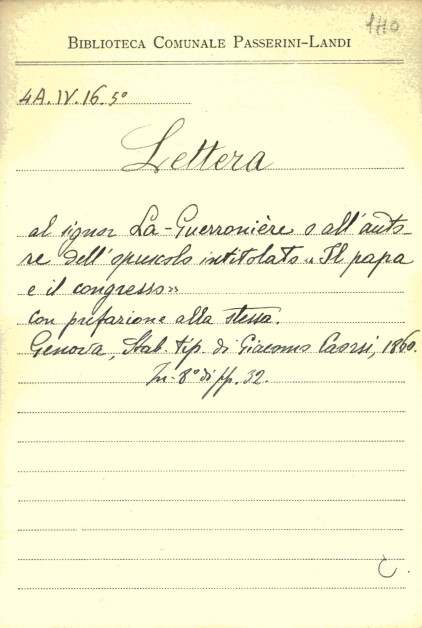 1110
BIBLIOTECA COMUNALE PASSERINI-LANDI
4A.IV.16.5º
Lettera
al signor La-Guerronière o all'auto-
re dell'opuscolo intitolato "Il papa
e il congresso"
con prefazione alla stessa.
Genova, Stab. tip. di Giacomo Caorsi, 1860.
In-8º di pp. 32.
C.